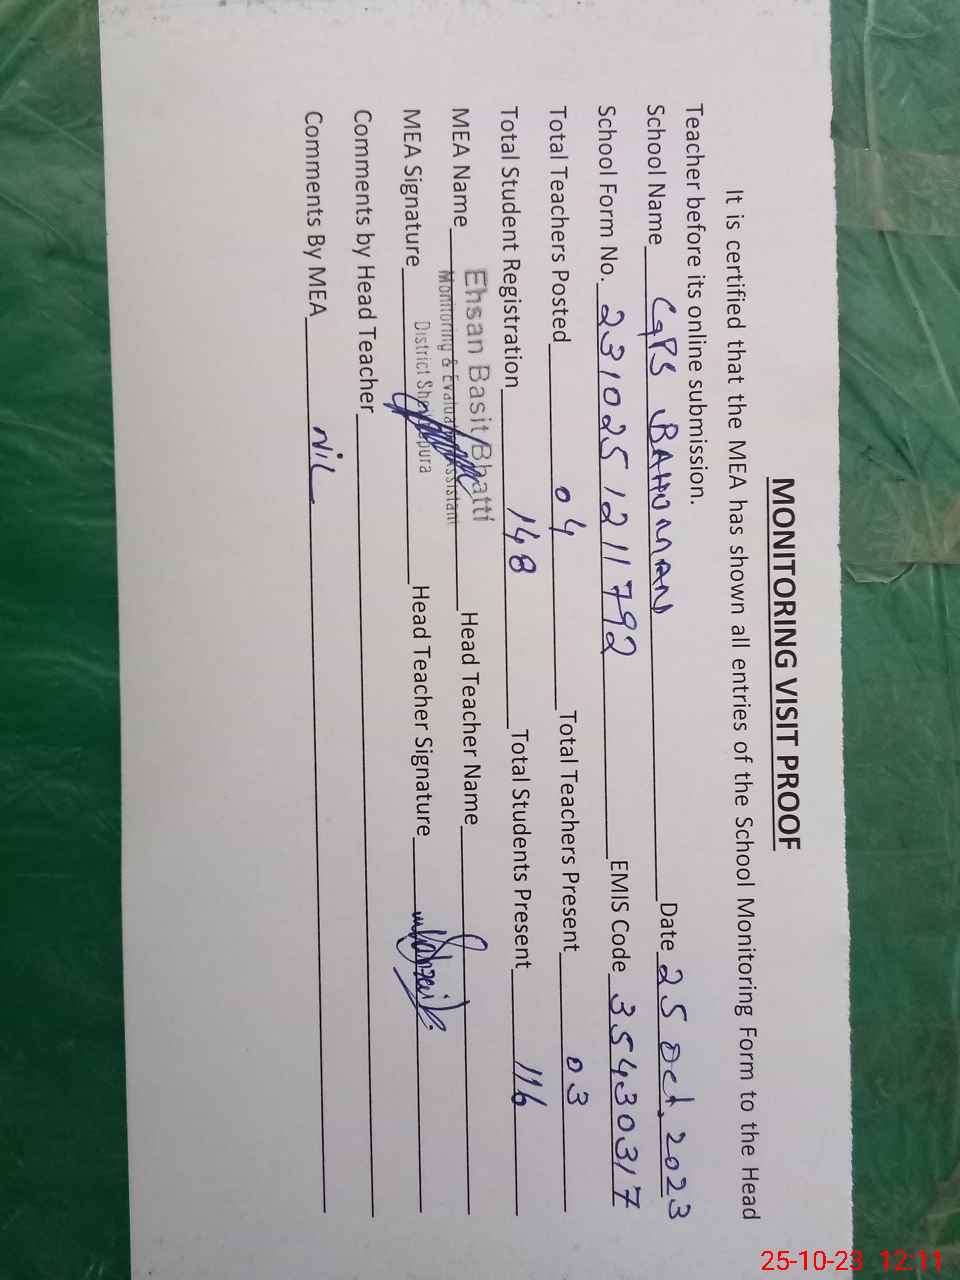 MONITORING VISIT PROOF
It is certified that the MEA has shown all entries of the School Monitoring Form to the Head
Teacher before its online submission.
School Name GPS BAHUMAN Date 25 Oct. 2023
School Form No. 231025 1211792 EMIS Code 35430317
Total Teachers Posted 04 Total Teachers Present 03
Total Student Registration 148 Total Students Present 116
MEA Name Ehsan Basit Bhatti Head Teacher Name
Monitoring & Evaluation Assistant
MEA Signature District Sheikhupura Head Teacher Signature
Comments by Head Teacher
Comments By MEA Nil
25-10-23 12:11